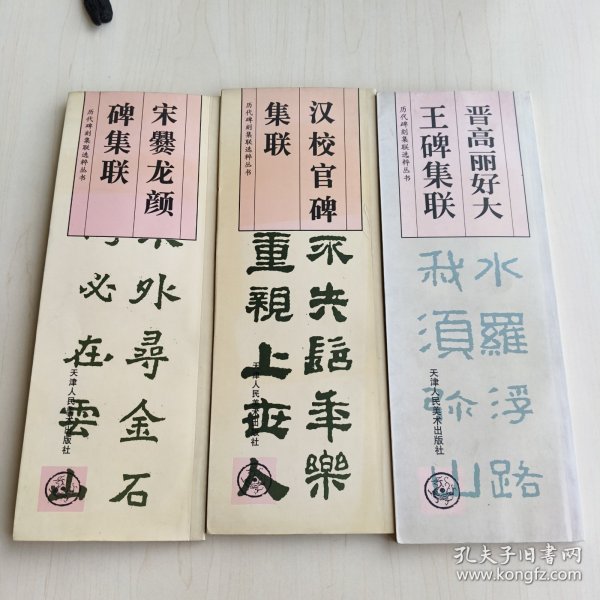 宋爨龙颜
碑集联
历代碑刻集联选粹丛书
外尋金石
必在雲山
天津人民美术出版社
汉校官碑
集联
历代碑刻集联选粹丛书
永失謡年樂
重親上世人
天津人民美术出版社
晋高丽好大
王碑集联
历代碑刻集联选粹丛书
水羅浮路
我須弥山
天津人民美术出版社
孔夫子旧书网
www.kongfz.com